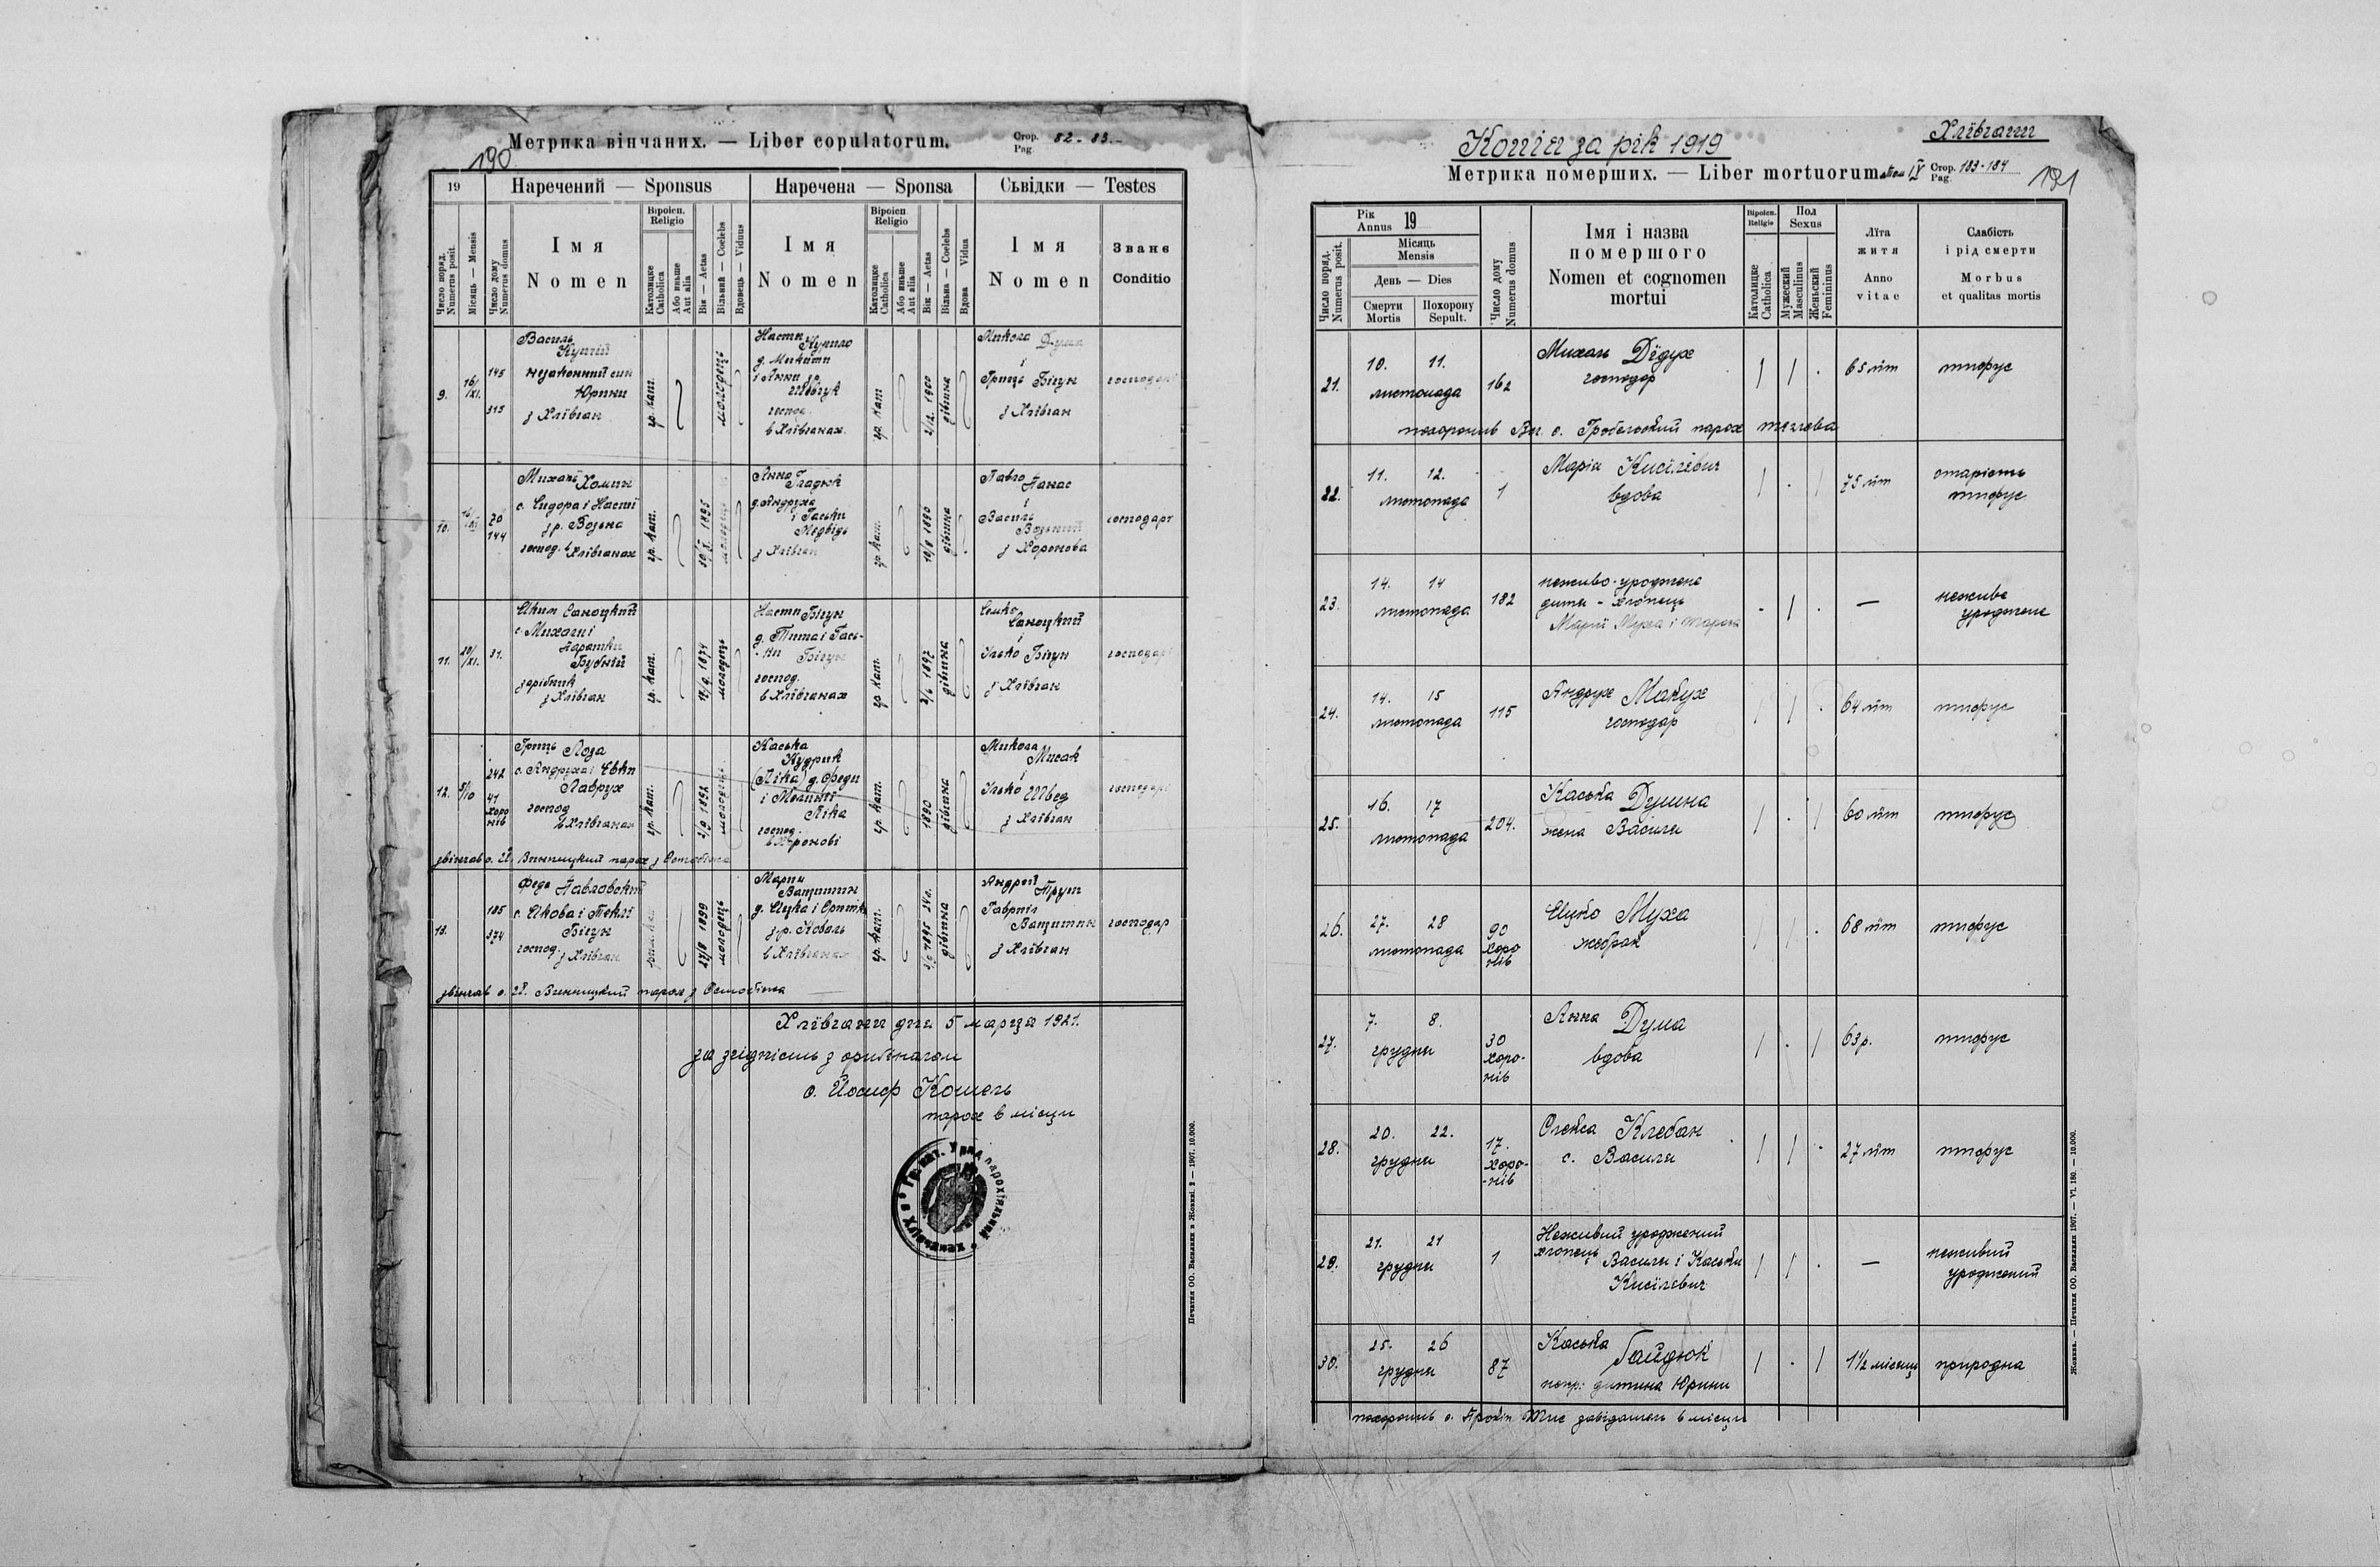 Метрика вінчаних. — Liber copulatorum.
Стор. Pag. 82-83.-
190
19
Наречений — Sponsus
Наречена — Sponsa
Сьвідки — Testes
Число поряд. Numerus posit.
Місяць — Mensis
Число дому Numerus domus
Імя
Nomen
Віроісп. Religio
Католицке Catholica
Або иньше Aut alia
Вік — Aetas
Вільний — Coelebs
Вдовець — Viduus
Імя
Nomen
Віроісп. Religio
Католицке Catholica
Або иньше Aut alia
Вік — Aetas
Вільна — Coelebs
Вдова Vidua
Імя
Nomen
Званє
Conditio
9. 16/XI. 145 315
Василь
незаконний син
Юрини
з Хлівчан
гр. кат.
молодець
Настя Курило
д. Микити
і Анни зр.
госпо.
в Хлівчанах
гр. кат
2/12. 1900
дівчина
Микола Дума
і
Гриць Бігун
з Хлівчан
господарі
10. 70 144
Михаль Хомин
с. Сидора і Насті
з р. Возьна
господ. в Хлівчанах
гр. кат.
1895
молодець
Анна Гладюк
д. Андруха
і Гаськи
Медвідь
з Хлівчан
гр. кат.
10/8 1890
дівчина
Павло Панас
і
Василь
з Хоронова
господарі
11. 20/XI. 31.
Яким Саноцкий
с. Михаля і
Параньки
зарібник
з Хлівчан
гр. кат.
1874
молодець
Настя Бігун
д. Тита і Гась-
-ки Бігун
господ.
в Хлівчанах
гр. кат.
2/6 1897
дівчина
Семко
Саноцкий
і
Ілько Бігун
з Хлівчан
господарі
12. 5/10 242 41 Хоро нів
Гриць Лоза
с. Андруха і Євки
Лаврух
господ
в Хлівчанах
гр. кат.
2/9 1892
молодець
Каська
Кудрик
(Ліка) д. Федя
і Меланії
Ліка
господ.
в Хоронові
гр. кат.
1890
дівчина
Микола Мисак
і
Ілько Швед
з Хлівчан
господарі
звінчав о. Вінницкий парох з Остобожа
13. 185 374
Федь Павловский
с. Якова і Теклі
Бігун
господ. з Хлівчан
27/8 1899
молодець
Марія
Ващишин
д. Яцка і Оришки
з р. Коваль
в Хлівчанах
гр. кат.
1895 24л.
дівчина
Андрей Труш
Гавриїл
Ващишин
з Хлівчан
господар
звінчав о. Вінницкий парох з Остобожа
Хлівчани дня 5 марця 1921.
за згідність з оригіналом
о. Йосиф Кошель
парох в місци
Гр. кат. Уряд парохіяльний
Печатня ОО. Василиян в Жовкві. 2 — 1907. 10.000.
Копія за рік 1919
Хлівчани
Метрика померших. — Liber mortuorum.
том IV Стор. Pag. 183-184
191
Число поряд. Numerus posit.
Рік Annus 19
Місяць Mensis
День — Dies
Смерти Mortis
Похорону Sepult.
Число дому Numerus domus
Імя і назва
помершого
Nomen et cognomen
mortui
Віроісп. Religio
Католицке Catholica
Пол Sexus
Мужеский Masculinus
Женьский Femininus
Літа
житя
Anno
vitae
Слабість
і рід смерти
Morbus
et qualitas mortis
21. 10. 11. листопада 162
Михаль Дідух
господар
65 літ тифус
22. 11. 12. листопада 1
Марія Кисілевич
вдова
75 літ старість тифус
23. 14. 14 листопада 182
неживо-уроджене
дитя - хлопець
Марії Муха і Тараса
— неживе уроджене
24. 14. 15 листопада 115
Андрух Мабух
господар
64 літ тифус
25. 16. 17 листопада 204.
Каська Думина
жена Василя
60 літ тифус
26. 27. 28 листопада 90 Хоро нів
Яцко Муха
жебрак
68 літ тифус
27. 7. 8. грудня 30 Хоро- нів
Анна Дума
вдова
63 р. тифус
28. 20. 22. грудня 17. Хоро- -нів
Олекса Клебан
с. Василя
27 літ тифус
29. 21. 21 грудня 1
Неживий уроджений
хлопець Василя і Каськи
Кисілевич
— неживий уроджений
30. 25. 26 грудня 87
Каська
Гайдюк
непр. дитина Юрини
1 1/2 місяць природна
похоронив о. Прокіп завідатель в місци
Жовква. — Печатня ОО. Василиян 1907. — VI. 180. — 10.000.